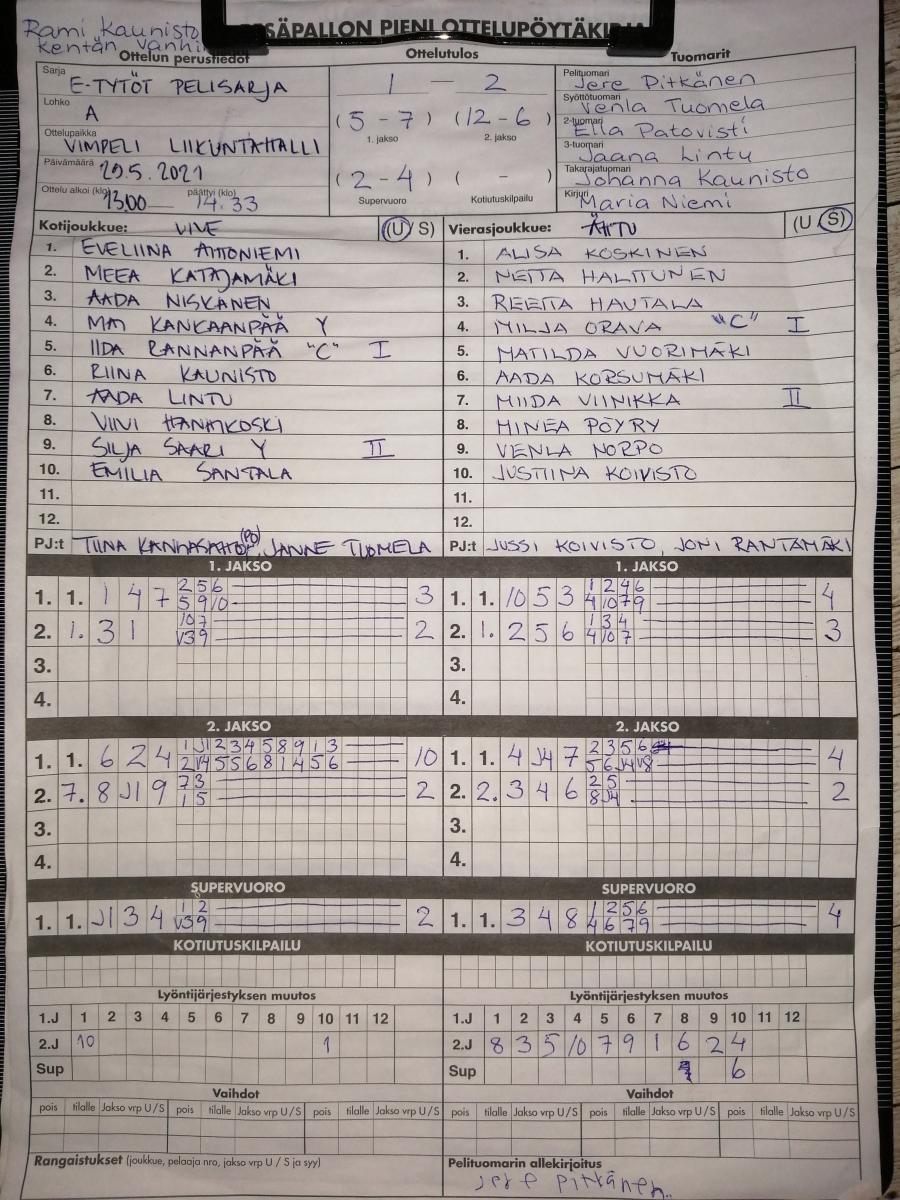 Rami Kaunisto
kentän vanhin
PESÄPALLON PIENI OTTELUPÖYTÄKIRJA
Ottelun perustiedot Ottelutulos Tuomarit
Sarja E-TYTÖT PELISARJA
Lohko A
Ottelupaikka VIMPELI LIIKUNTAHALLI
Päivämäärä 29.5.2021
Ottelu alkoi (klo) 13.00 päättyi (klo) 14.33
1 — 2
(5 - 7) (12 - 6)
1. jakso 2. jakso
(2 - 4) ( - )
Supervuoro Kotiutuskilpailu
Pelituomari Jere Pitkänen
Syöttötuomari Venla Tuomela
2-tuomari Ella Patovisti
3-tuomari Jaana Lintu
Takarajatuomari Johanna Kaunisto
Kirjuri Maria Niemi
Kotijoukkue: VIVE (U S)
1. EVELIINA AHTONIEMI
2. MEEA KATAJAMÄKI
3. AADA NISKANEN
4. MAI KANKAANPÄÄ Y
5. IIDA RANNANPÄÄ "C" I
6. RIINA KAUNISTO
7. AADA LINTU
8. VIIVI HANHIKOSKI
9. SILJA SAARI Y II
10. EMILIA SANTALA
11.
12.
PJ:t TIINA (PO), JANNE TUOMELA
Vierasjoukkue: ÄHTU (U S)
1. ALISA KOSKINEN
2. NETTA HALTTUNEN
3. REETTA HAUTALA
4. MILJA ORAVA "C" I
5. MATILDA VUORIMÄKI
6. AADA KORSUMÄKI
7. MIIDA VIINIKKA II
8. MINEA PÖYRY
9. VENLA NORPO
10. JUSTIINA KOIVISTO
11.
12.
PJ:t JUSSI KOIVISTO, JONI RANTAMÄKI
1. JAKSO
1. 1. 1 4 7 2 5 6 3
5 9 10
2. 1. 3 1 10 7 2
V3 9
3.
4.
1. JAKSO
1. 1. 10 5 3 1 2 4 6 4
4 10 7 9
2. 1. 2 5 6 1 3 4 3
4 10 7
3.
4.
2. JAKSO
1. 1. 6 2 4 1 J1 2 3 4 5 8 9 1 3 10
2 V4 5 5 6 8 1 4 5 6
2. 7. 8 J1 9 7 3 2
1 5
3.
4.
2. JAKSO
1. 1. 4 J4 7 2 3 5 6 4
5 6 J4 V8
2. 2. 3 4 6 2 5 2
8 J4
3.
4.
SUPERVUORO
1. 1. J1 3 4 1 2 2
V3 9
SUPERVUORO
1. 1. 3 4 8 1 2 5 6 4
4 6 7 9
KOTIUTUSKILPAILU
KOTIUTUSKILPAILU
Lyöntijärjestyksen muutos
1.J 1 2 3 4 5 6 7 8 9 10 11 12
2.J 10 1
Sup
Lyöntijärjestyksen muutos
1.J 1 2 3 4 5 6 7 8 9 10 11 12
2.J 8 3 5 10 7 9 1 6 2 4
Sup 6
Vaihdot
pois tilalle Jakso vrp U/S pois tilalle Jakso vrp U/S pois tilalle Jakso vrp U/S
Vaihdot
pois tilalle Jakso vrp U/S pois tilalle Jakso vrp U/S pois tilalle Jakso vrp U/S
Rangaistukset (joukkue, pelaaja nro, jakso vrp U / S ja syy)
Pelituomarin allekirjoitus
Jere Pitkänen